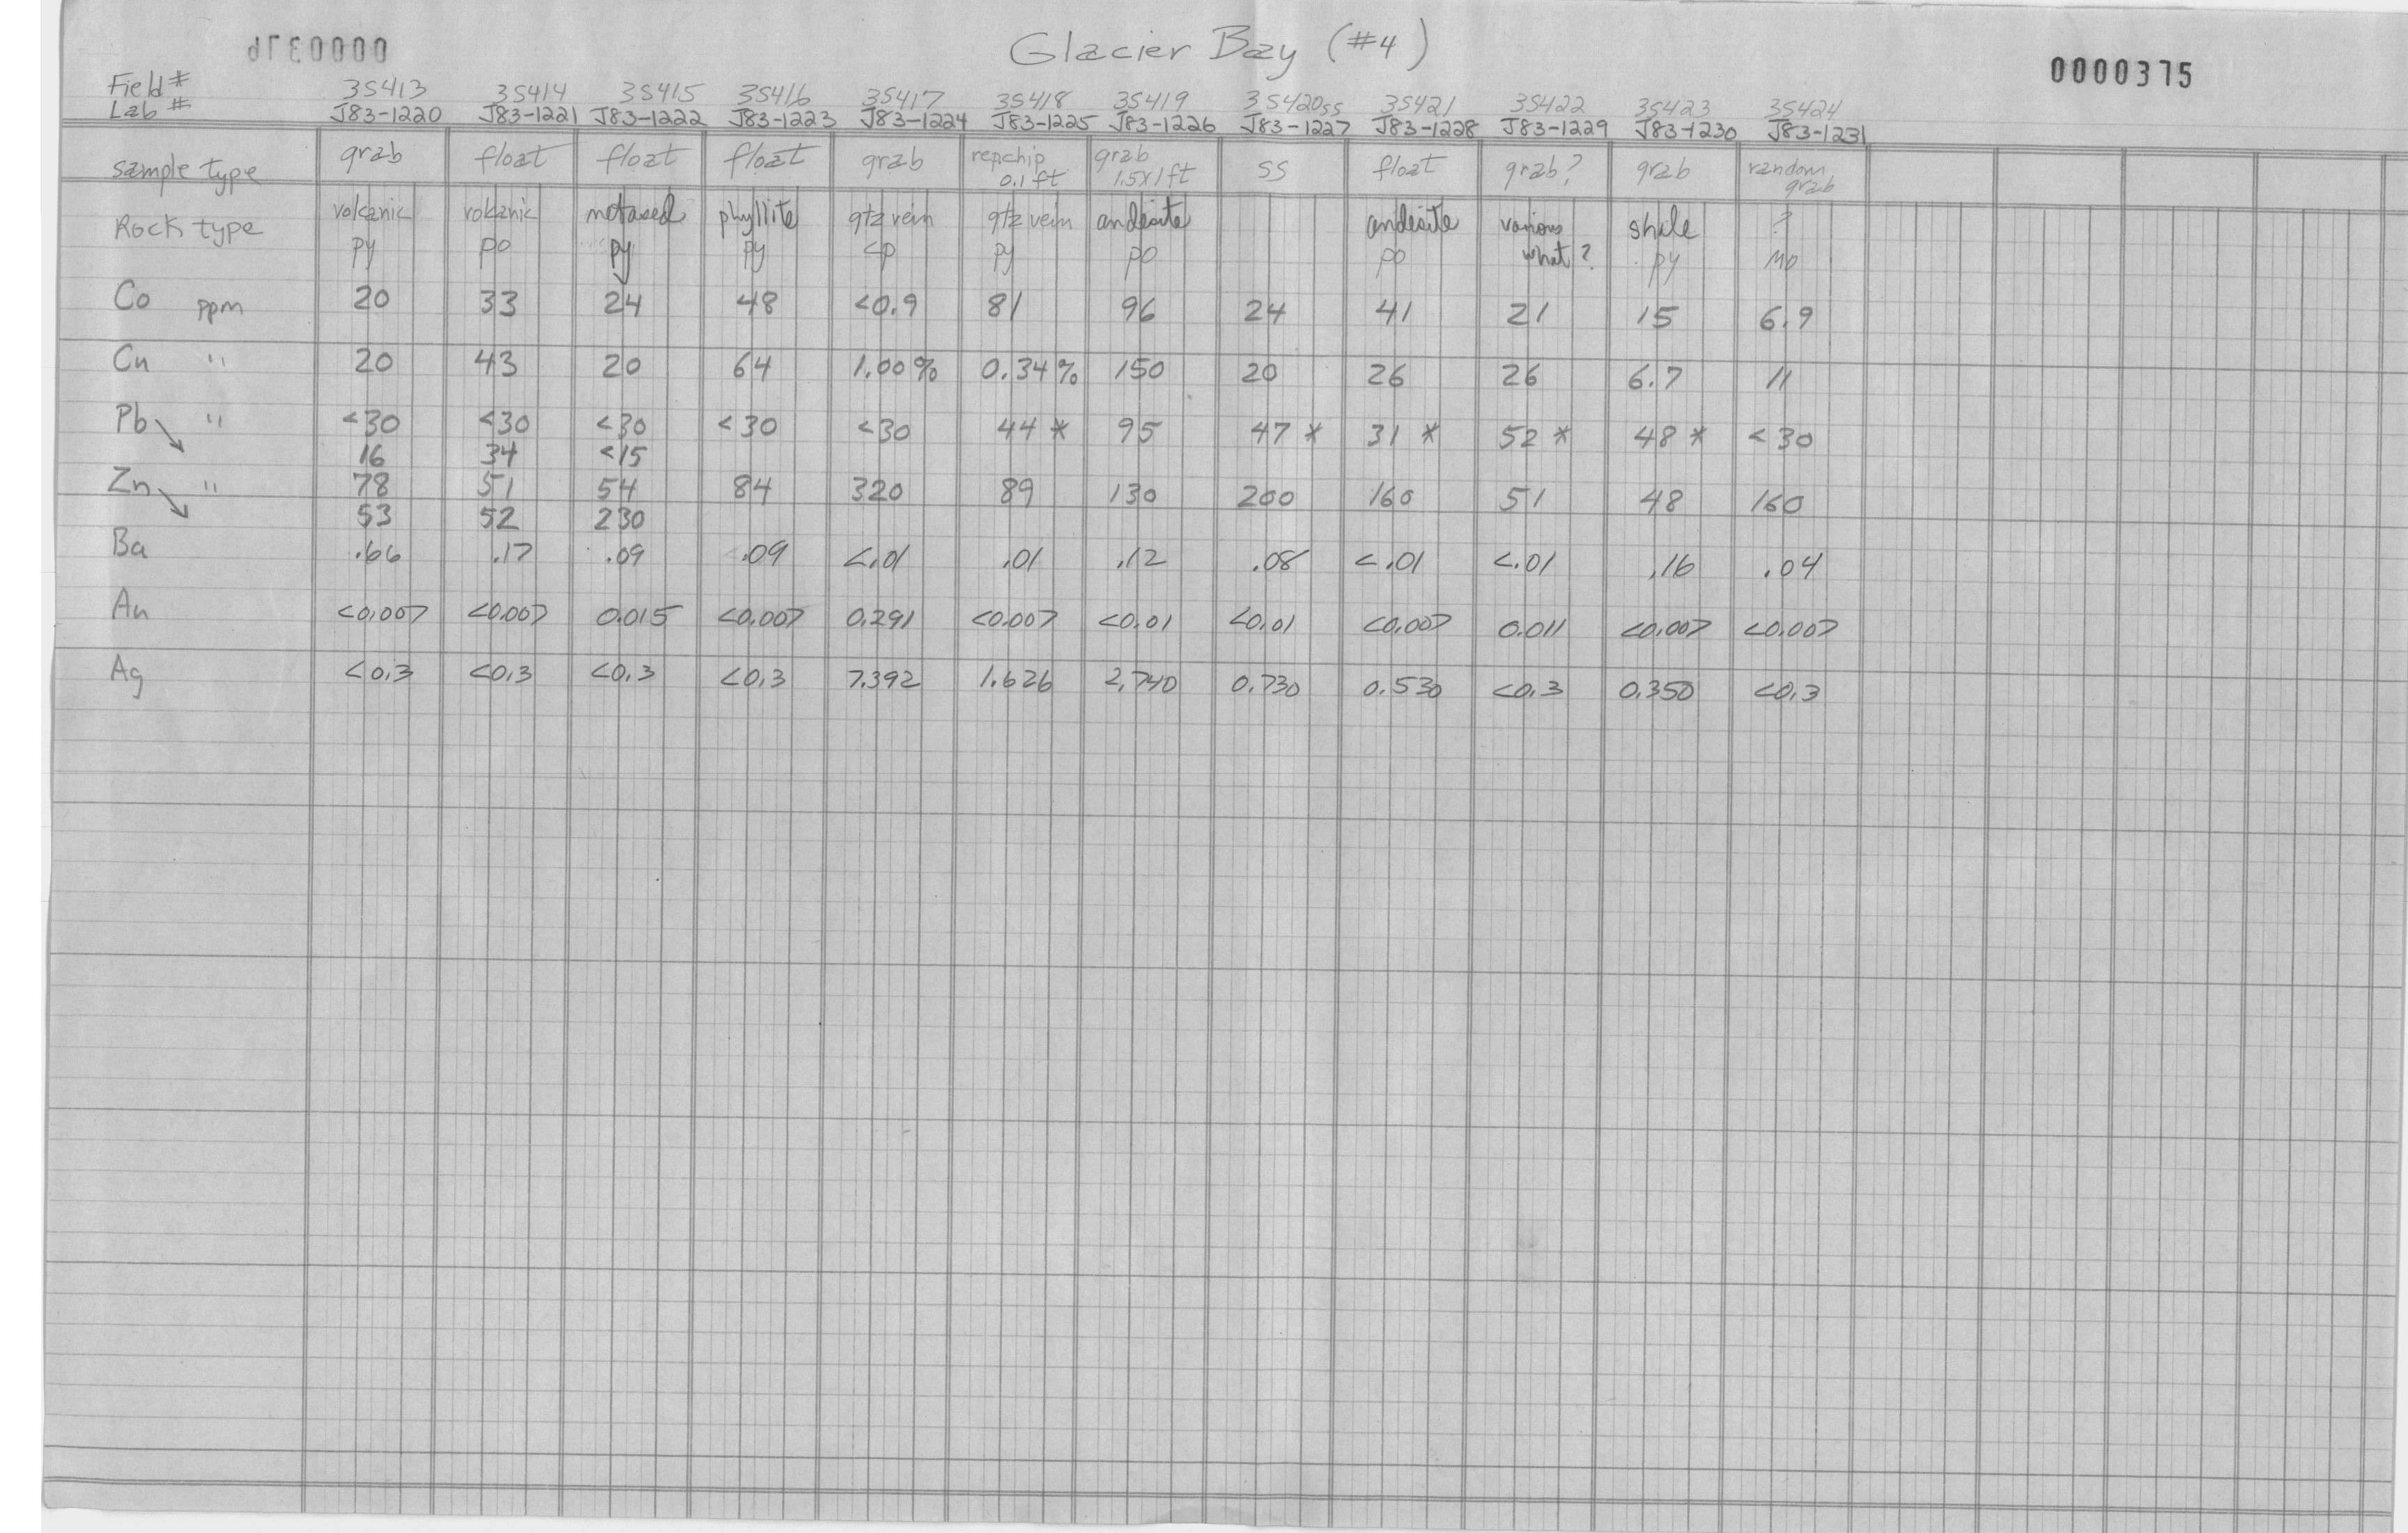 Glacier Bay (#4)
0000375
Field # 3S413 3S414 3S415 3S416 3S417 3S418 3S419 3S420ss 3S421 3S422 3S423 3S424
Lab # J83-1220 J83-1221 J83-1222 J83-1223 J83-1224 J83-1225 J83-1226 J83-1227 J83-1228 J83-1229 J83-1230 J83-1231
sample type grab float float float grab repchip 0.1 ft grab 1.5x1ft ss float grab? grab random grab
Rock type volcanic volcanic metased phyllite qtz vein qtz vein andesite andesite various shale ?
py po py py cp py po po what? py Mo
Co ppm 20 33 24 48 <0.9 81 96 24 41 21 15 6.9
Cu " 20 43 20 64 1.00% 0.34% 150 20 26 26 6.7 11
Pb " <30 <30 <30 <30 <30 44 * 95 47 * 31 * 52 * 48 * <30
16 34 <15
Zn " 78 51 54 84 320 89 130 200 160 51 48 160
53 52 230
Ba .66 .17 .09 .09 <.01 .01 .12 .08 <.01 <.01 .16 .04
Au <0.007 <0.007 0.015 <0.007 0.291 <0.007 <0.01 <0.01 <0.007 0.011 <0.007 <0.007
Ag <0.3 <0.3 <0.3 <0.3 7.392 1.626 2.740 0.730 0.530 <0.3 0.350 <0.3